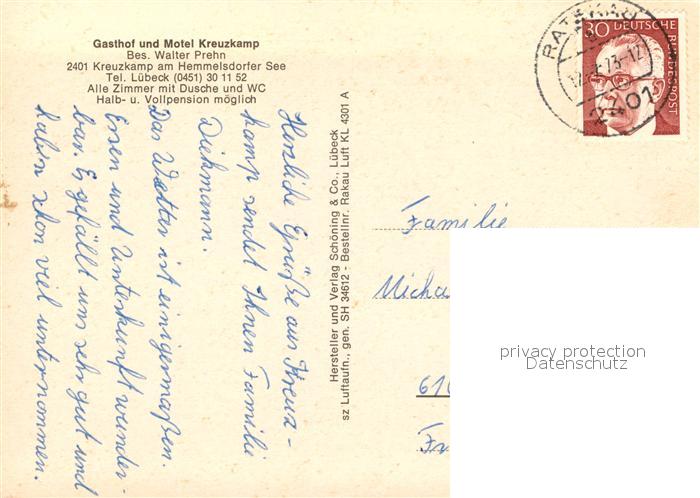 Gasthof und Motel Kreuzkamp
Bes. Walter Prehn
2401 Kreuzkamp am Hemmelsdorfer See
Tel. Lübeck (0451) 30 11 52
Alle Zimmer mit Dusche und WC
Halb- u. Vollpension möglich
Herzliche Grüße aus Kreuz-
kamp sendet Ihnen Familie
Diekmann.
Das Wetter ist einigermaßen.
Essen und Unterkunft wunder-
bar. Es gefällt uns sehr gut und
haben schon viel unternommen.
Hersteller und Verlag Schöning & Co., Lübeck
sz Luftaufn., gen. SH 34612 - Bestellnr. Rakau Luft KL 4301 A
RATEKAU
2401
30 DEUTSCHE
BUNDESPOST
Familie
Micha
610
Fr
privacy protection
Datenschutz